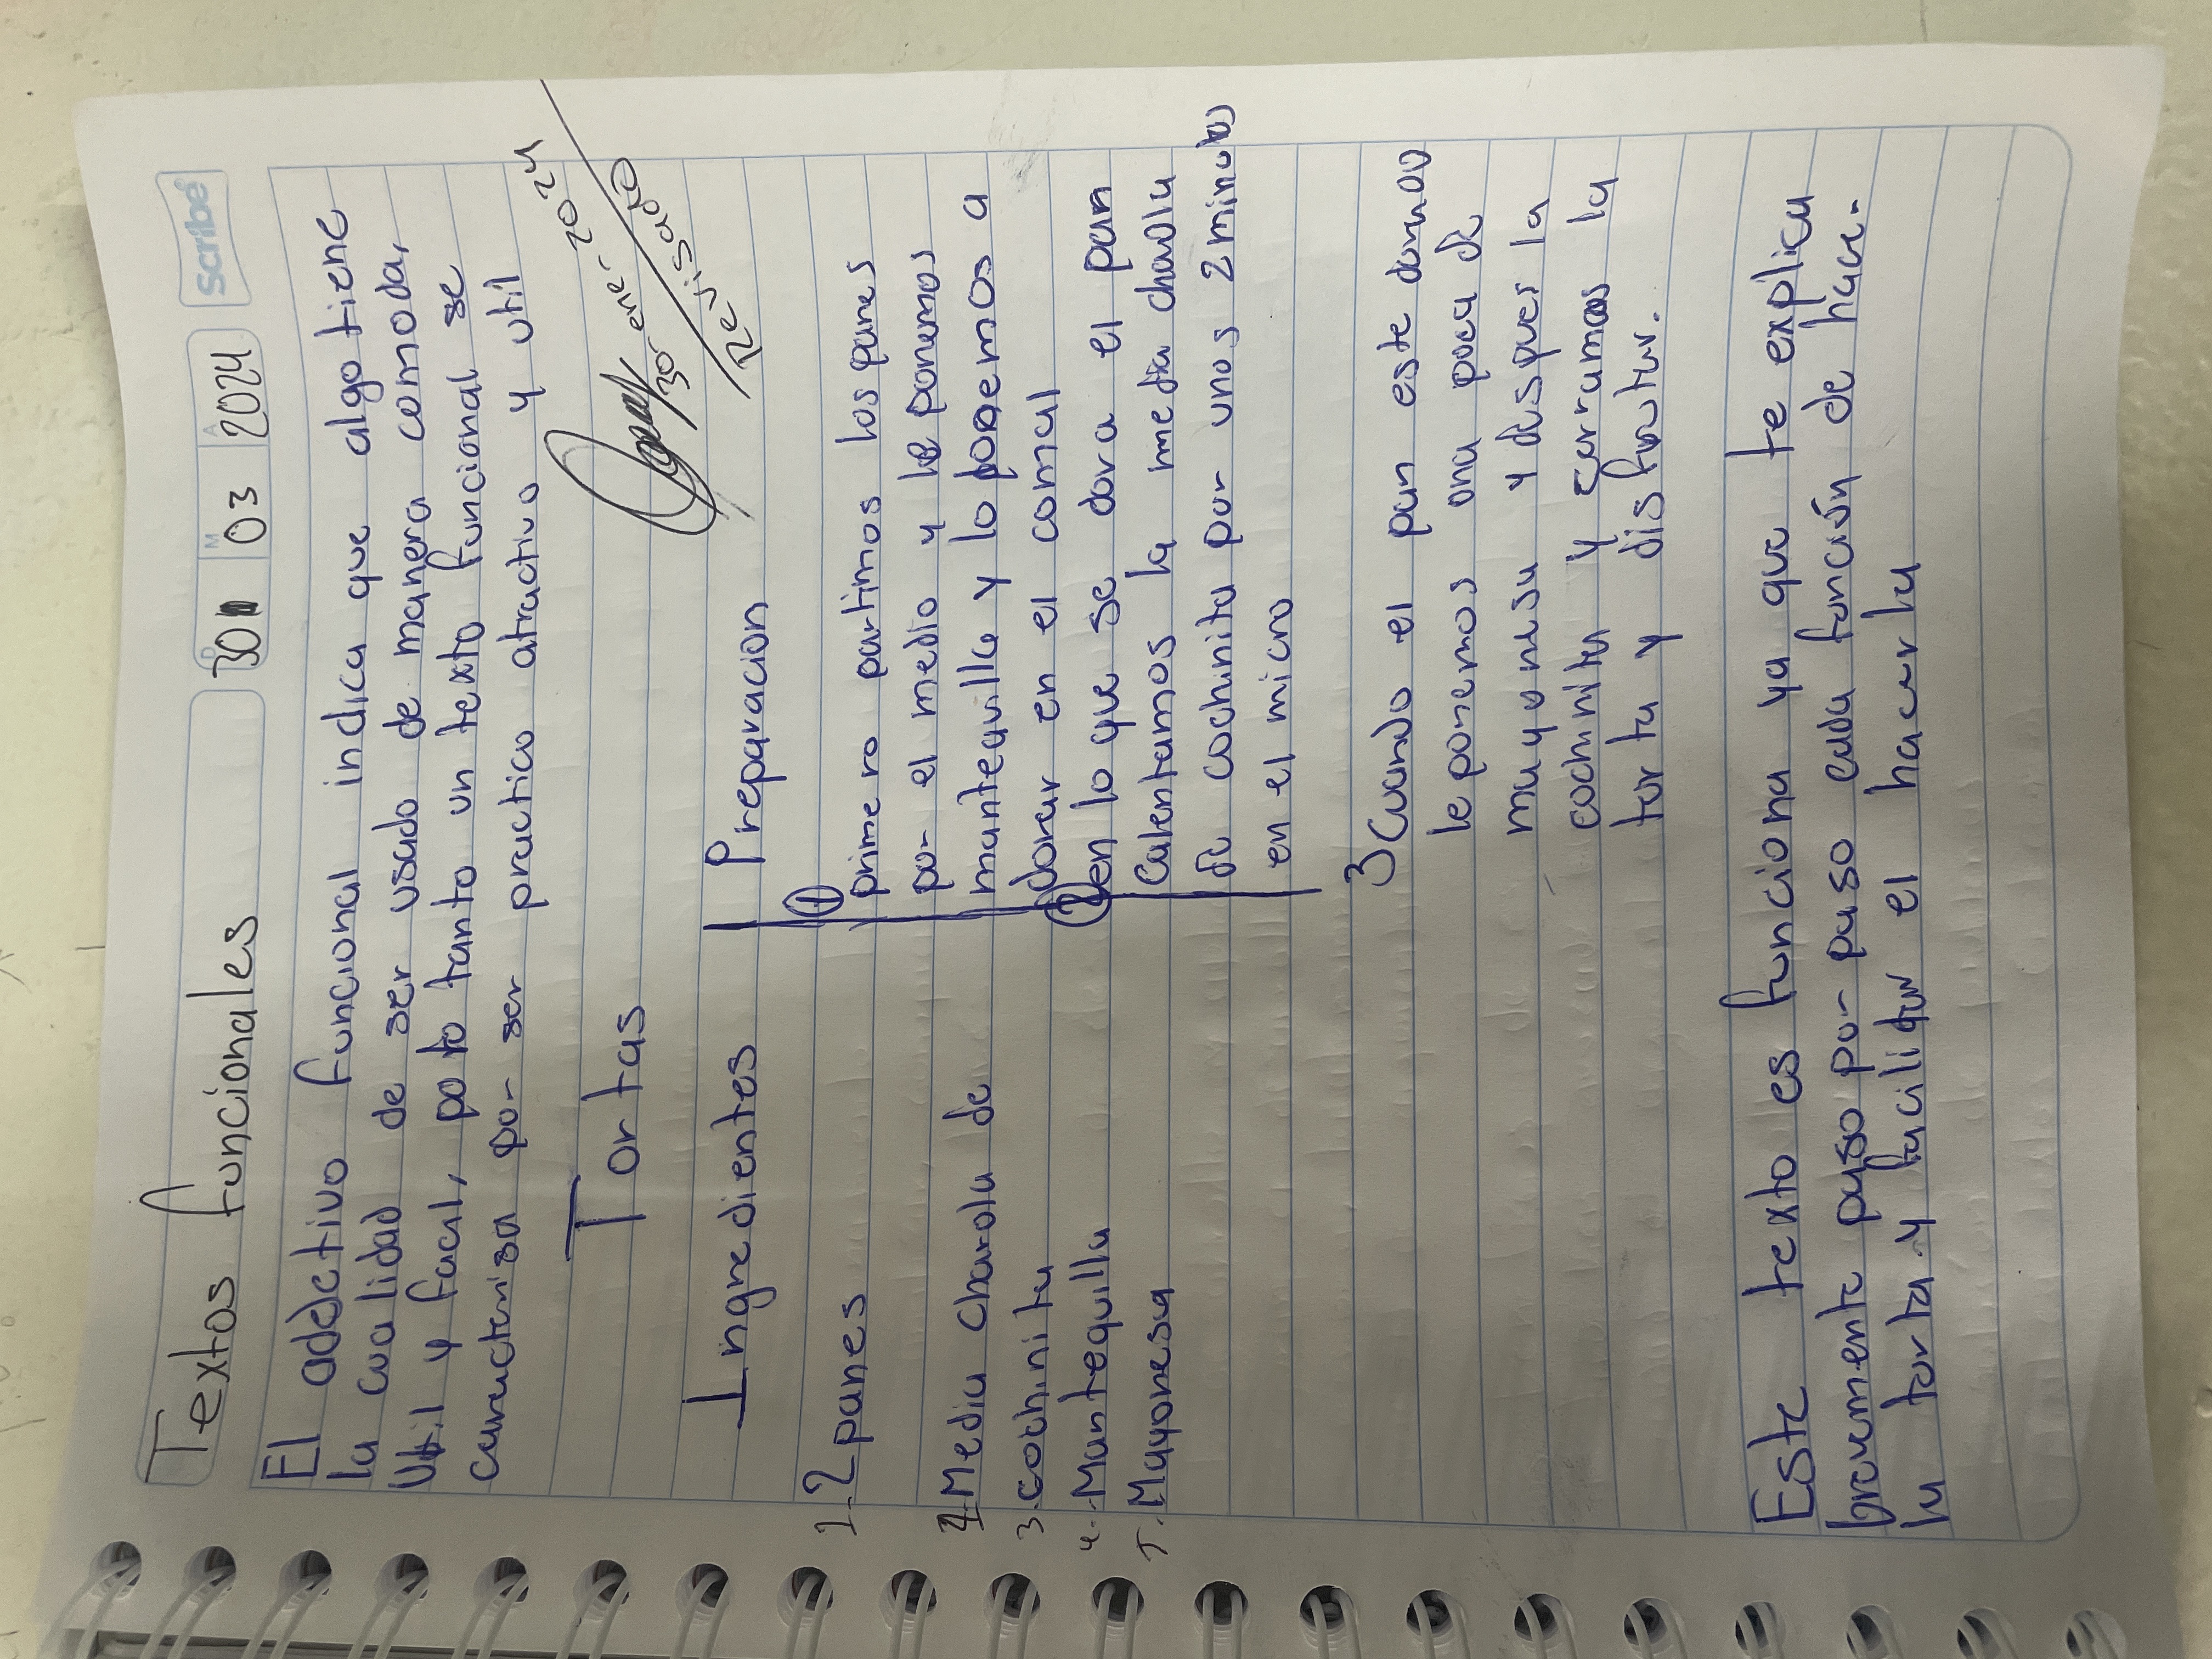 Textos funcionales
D 30 M 03 A 2024
Scribe
El addetivo funcional indica que algo tiene
la cualidad de ser usado de manera comoda,
Util y facil, por lo tanto un texto funcional se
caracterisa por ser practico atractivo y util
30-ene-2024
Revisado
Tortas
Ingredientes
1-2 panes
-Media charola de
3-cochinita
4.-Mantequilla
5.-Mayonesa
Preparacion
1
primero partimos los panes
por el medio y le ponemos
mantequilla y lo ponemos a
dorar en el comal
2 en lo que se dora el pan
Calentamos la media charola
de cochinita por unos 2 minutos
en el micro
3 Cuando el pan este dorado
le ponemos una poca de
mayonesa y despues la
cochinita y cerramos la
torta y disfrutar.
Este texto es funciona ya que te explica
brevemente paso por paso cada función de hacer
la torta y facilitar el hacerla